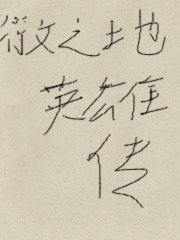 之地
英雄
传